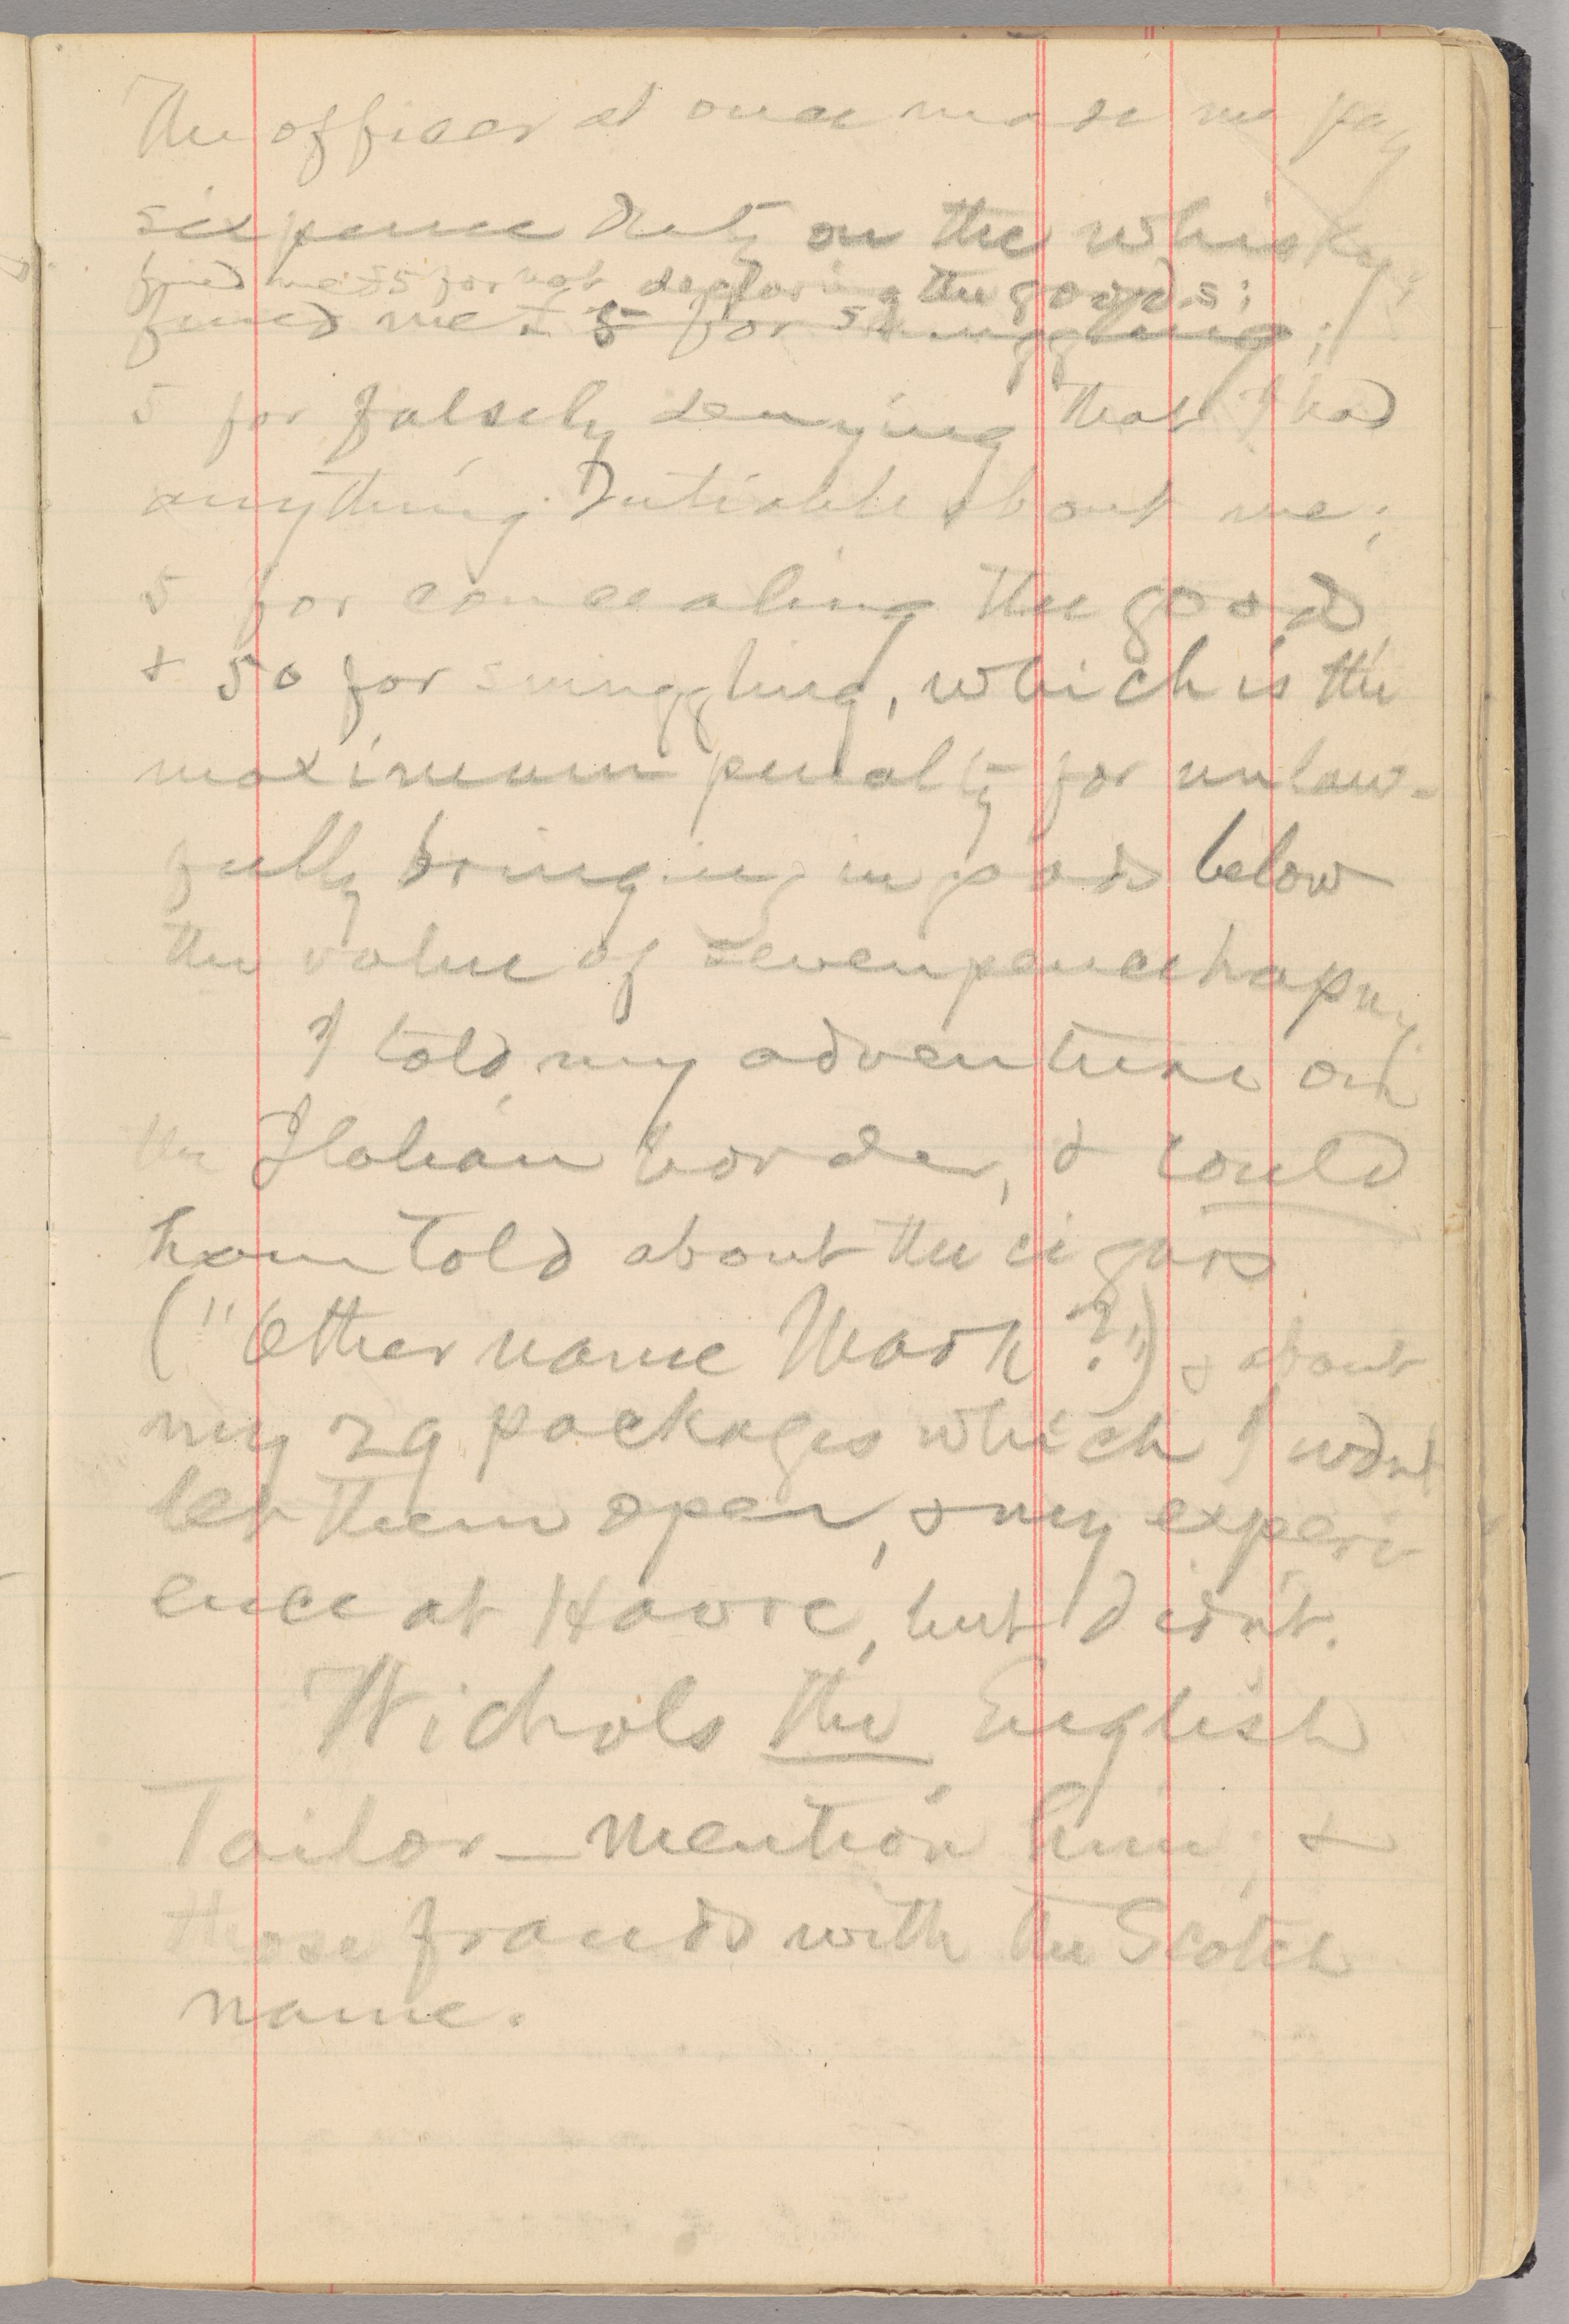 The officer at once made me pay
sixpence duty on the whisky;
fined me £5 for not declaring the goods;
fined me £5 for smuggling;
5 for falsely denying that I had
anything dutiable about me;
5 for concealing the goods,
& 50 for smuggling, which is the
maximum penalty for unlaw-
fully bringing in goods below
the value of sevenpence ha'pny
I told my adventure on
the Italian border, & could
have told about the cigars
("Other name Mark?") & about
my 29 packages which I wdnt
let them open, & my experi
ence at Havre, but didn't.
Nichols the English
Tailor—mention him, &
those frauds with the Scotch
name.